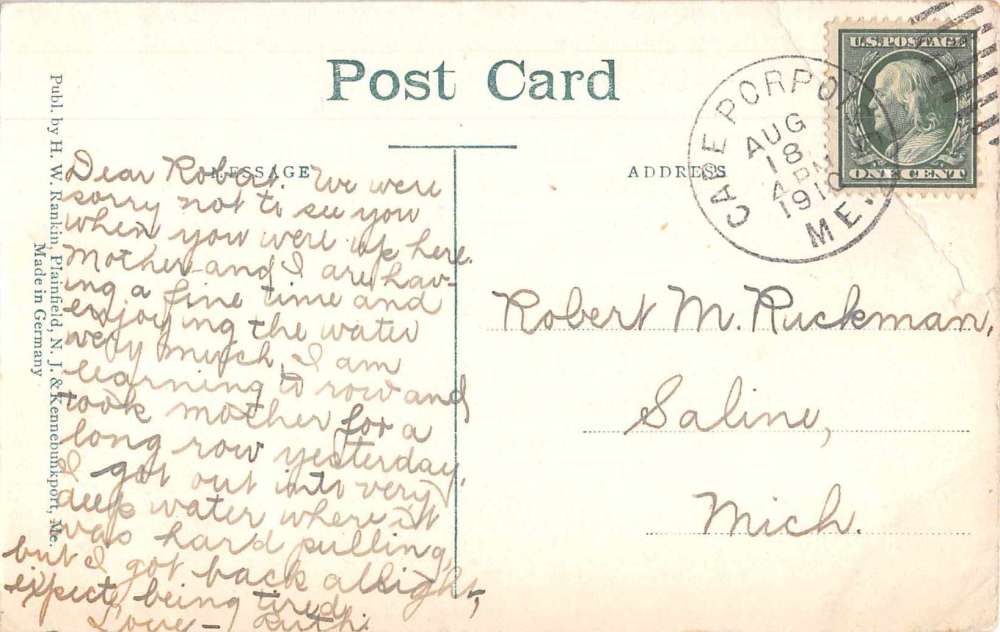 Post Card
U.S. POSTAGE
ONE CENT
CAPE PORPO
AUG
18
4 PM
1910
ME.
MESSAGE
ADDRESS
Publ. by H. W. Rankin, Plainfield, N. J. & Kennebunkport, Me.
Made in Germany
Dear Robert. We were
sorry not to see you
when you were up here.
Mother and I are hav-
ing a fine time and
enjoying the water
very much, I am
learning to row and
took mother for a
long row yesterday,
I got out into very
deep water where it
was hard pulling,
but I got back allright,
expect being tired
Love – Ruth.
Robert M. Ruckman,
Saline,
Mich.